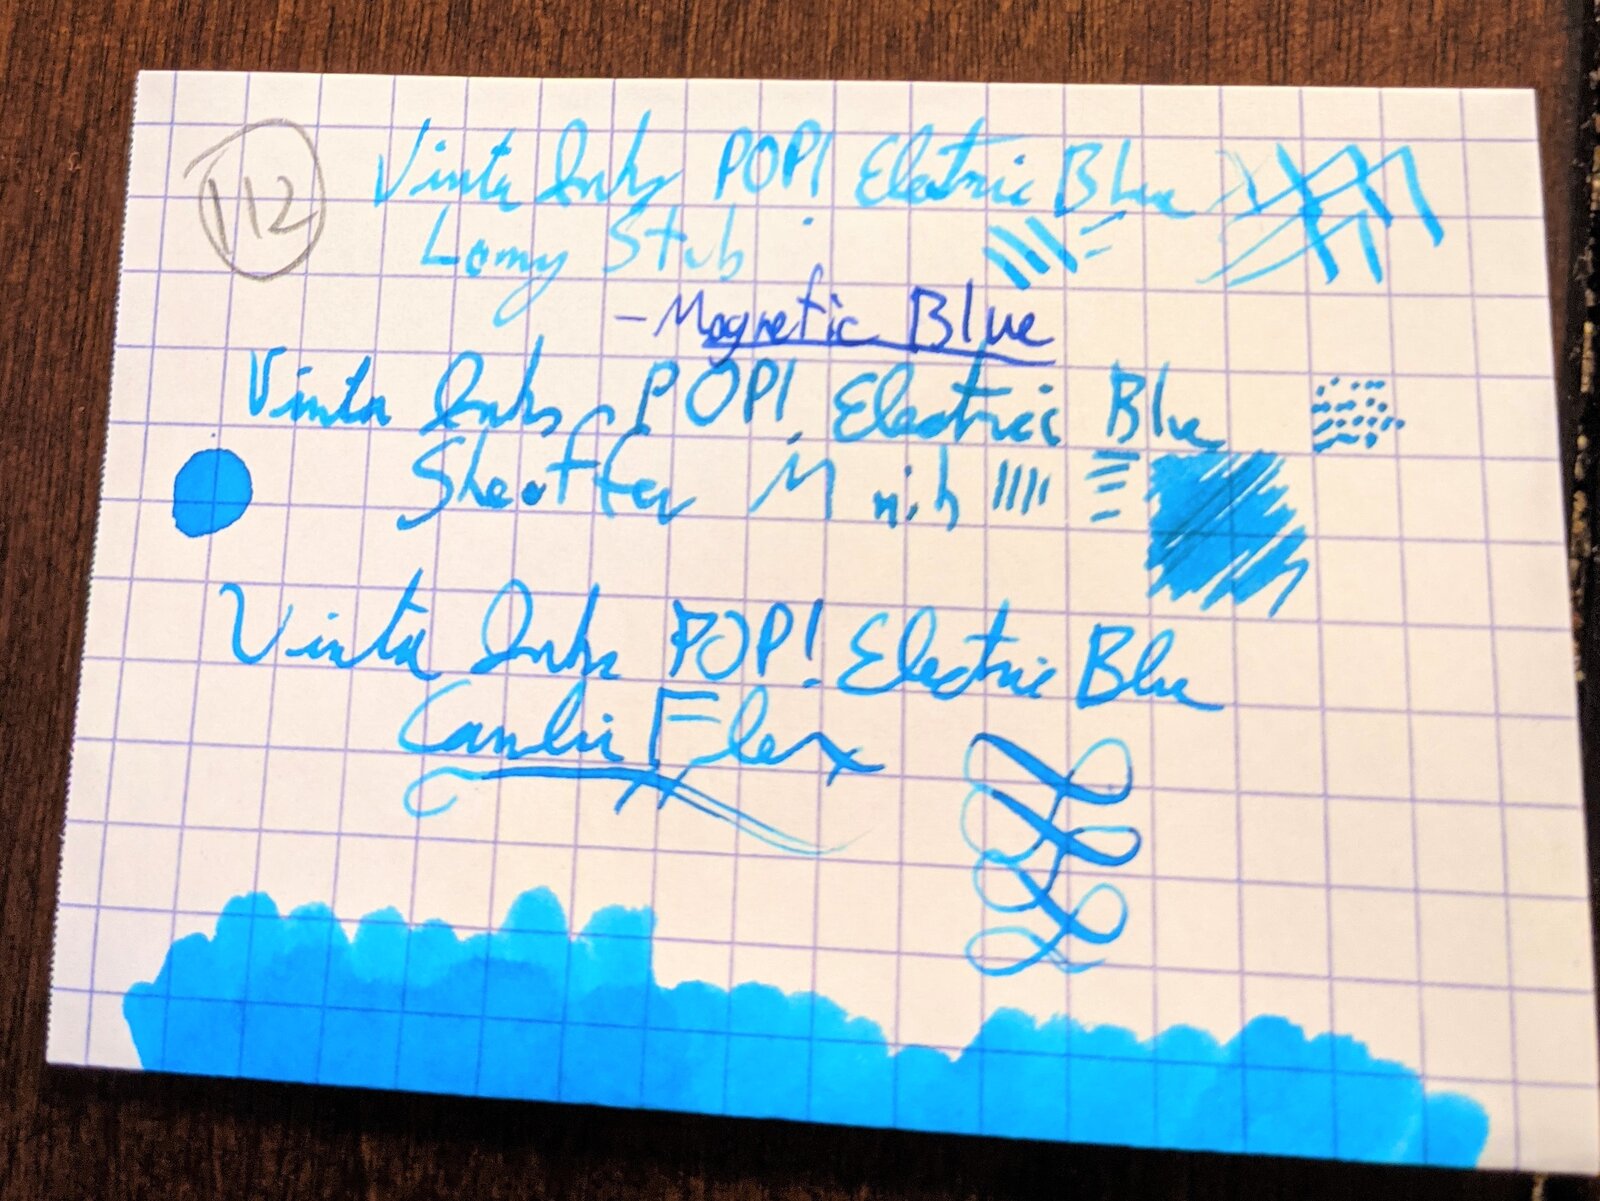 112
Vinta Inks POP! Electric Blue
Lamy Stub
- Magnetic Blue
Vinta Inks POP! Electric Blue
Sheaffer M nib
Vinta Inks POP! Electric Blue
Flex